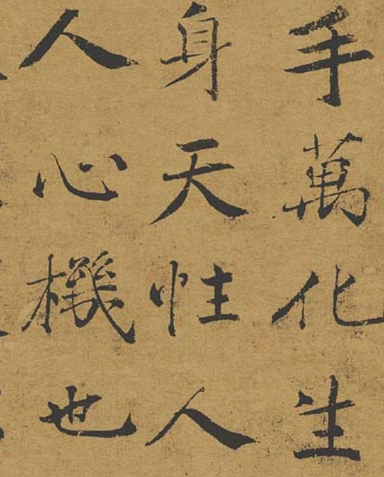 手萬化生
身天性人
人心機也